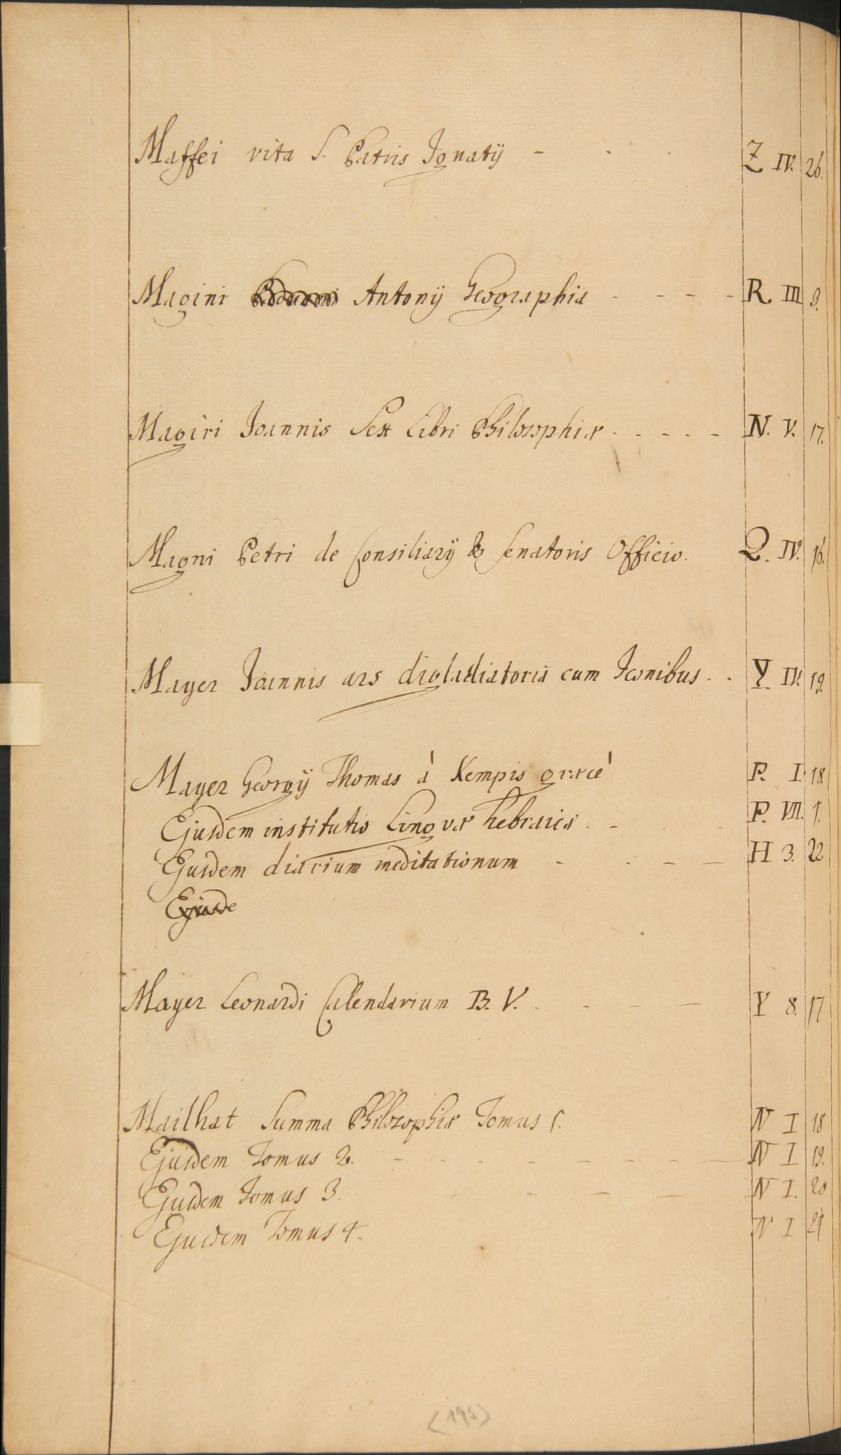 Maffei vita S. Patris Ignatij - Z IV. 26.
Magini Antonij Geographia - - - - R III 9.
Magiri Joannis Sex Libri Philosophiæ - - - - - N. V. 17.
Magni Petri de Consiliarij & Senatoris Officio. Q. IV. 16.
Mayer Joannis ars digladiatoria cum Iconibus. . Y IV. 19.
Mayer Georgij Thomas á Kempis græcé P. I. 18
Ejusdem institutio Linguæ Hebraicæ. - P. VII. 1.
Ejusdem diarium meditationum - - - H 3. 22
Ejusde
Mayer Leonardi Calendarium B. V. - - - Y 8. 17
Mailhat Summa Philosophiæ Tomus 1. N I 18
Ejusdem Tomus 2. - - - - - N I 19.
Ejusdem Tomus 3. - - - - N I. 20
Ejusdem Tomus 4. N I 21
(193)